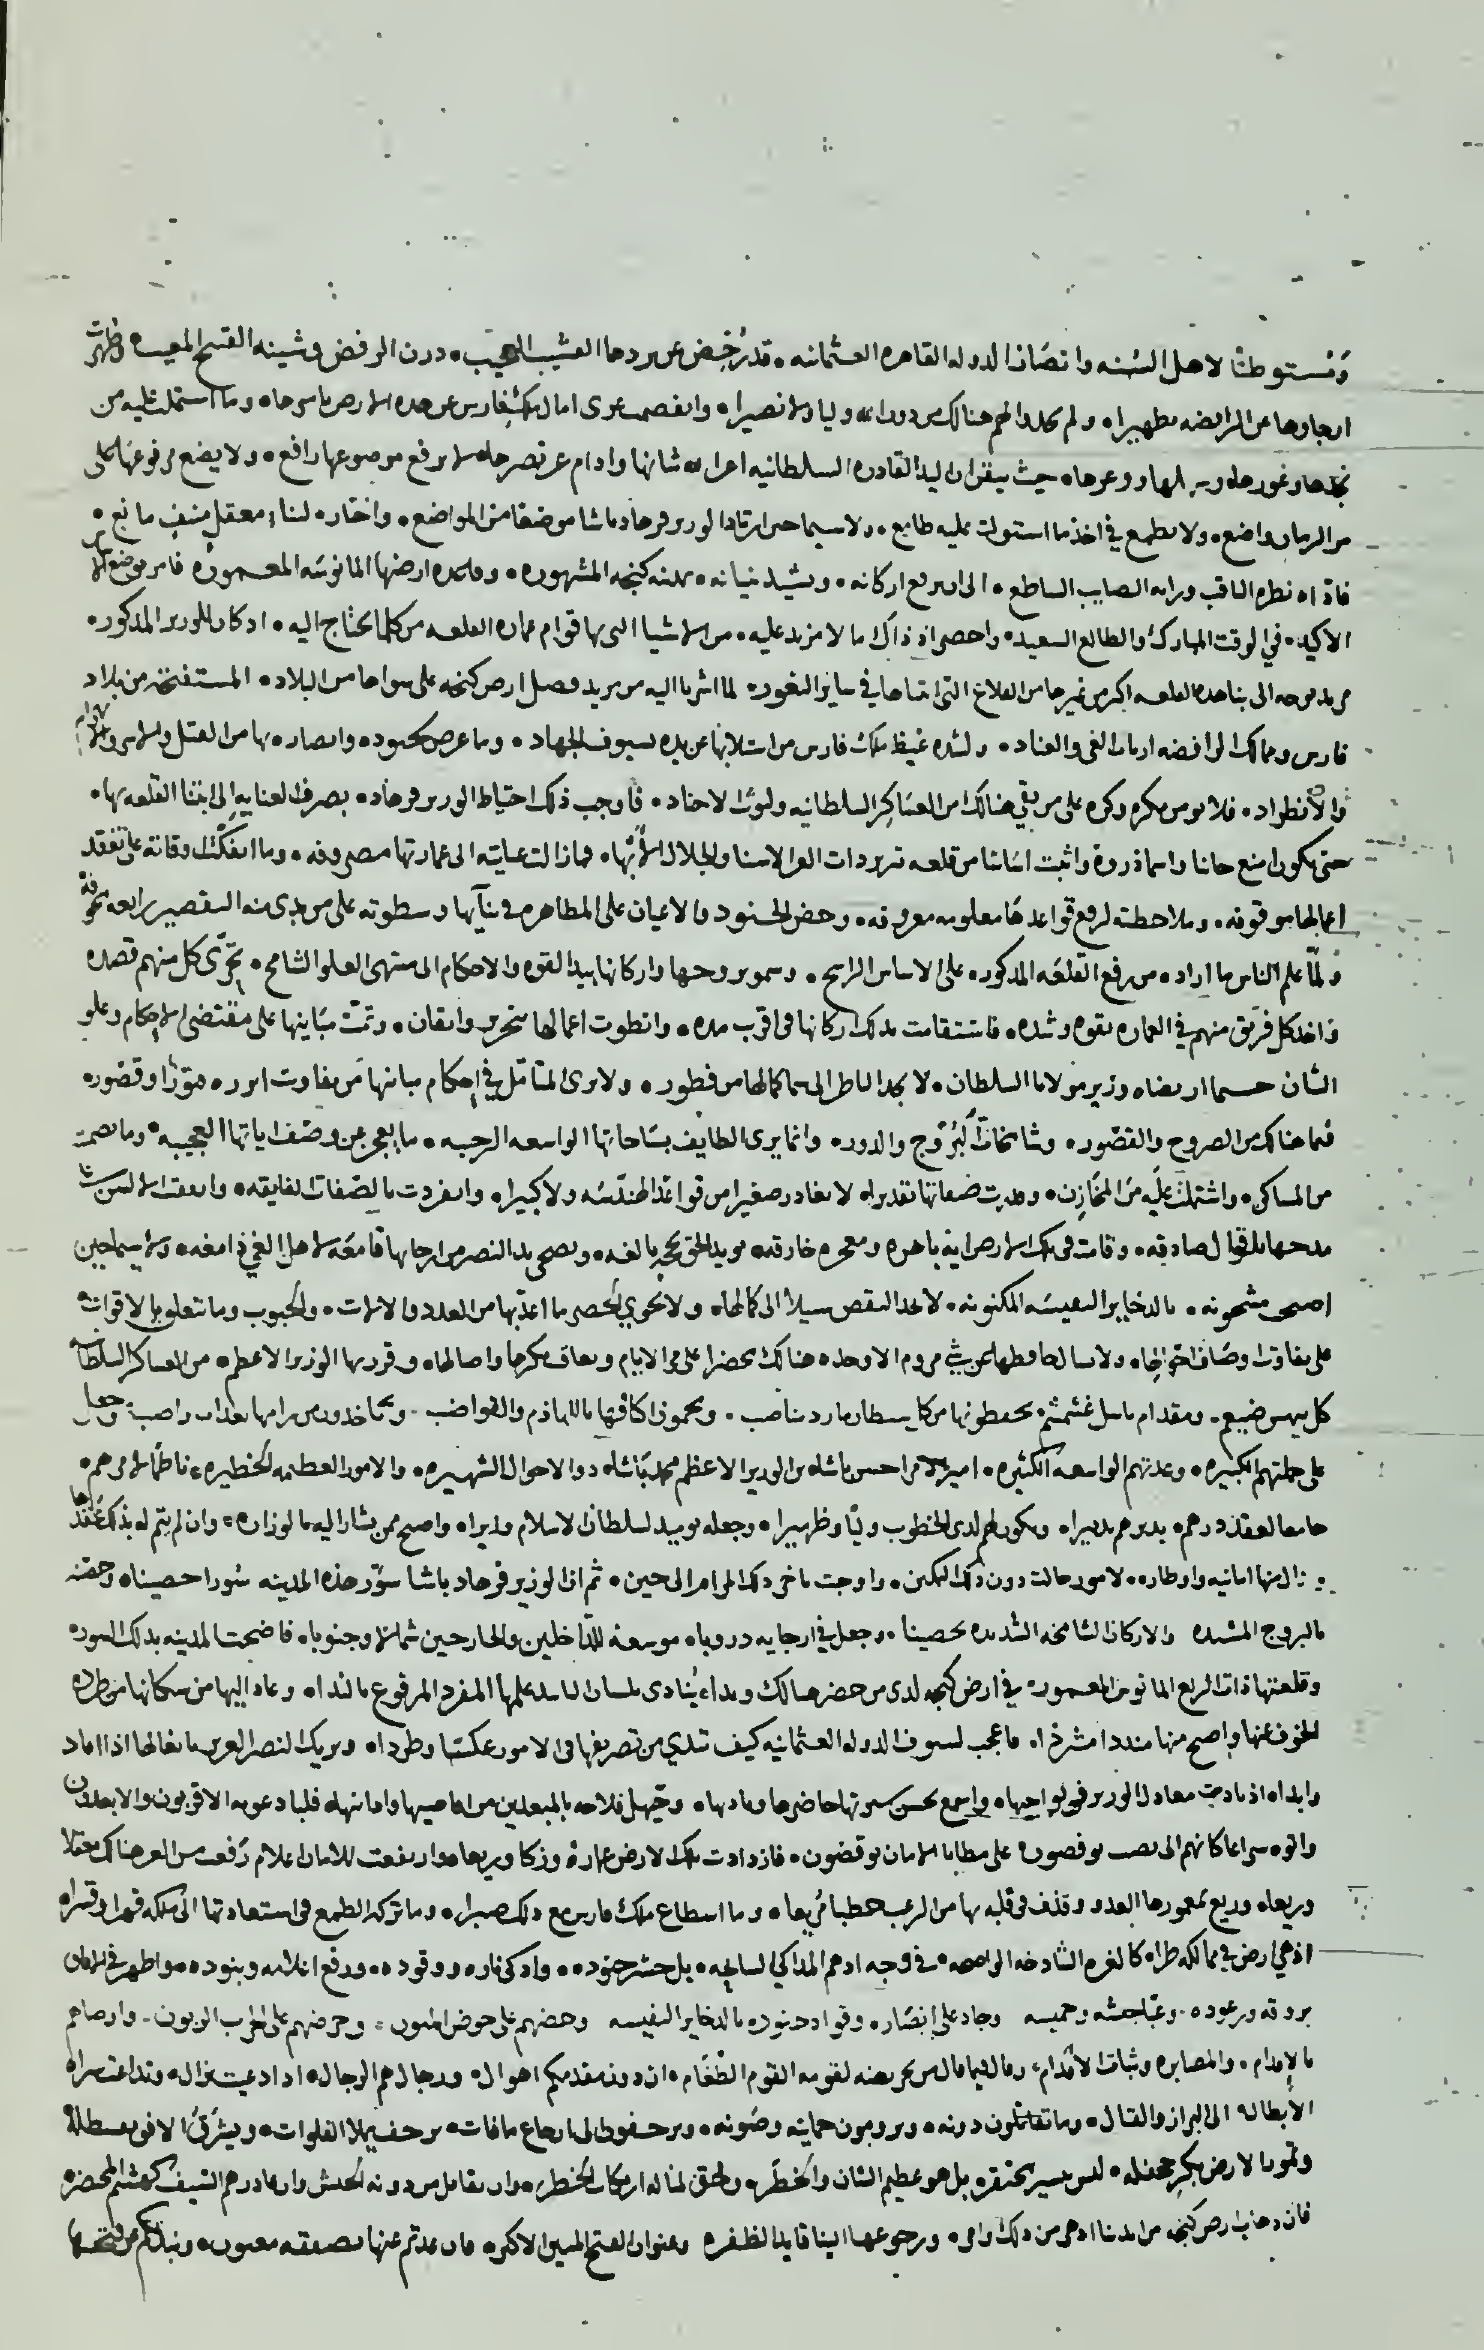 ومستوطنا لاهل السنه وانصار الدوله القاهره العثمانيه قد رخص عن بردها القشيب درن الرفض وشينه القبيح المعيب وطهرت
ارجاوها من الرافضه تطهيرا ولم يجدوا لهم هنالك من دون الله وليا ولا نصيرا وانفصمت عرى امال ملك فارس عن هذه الارض باسرها وما اشتملت عليه من
نجدها وغورها وسهلها ووعرها حيث تيقن ان اليد القادره السلطانيه اعز الله شانها وادام عز نصرها لا يرفع موضوعها رافع ولا يضع مرفوعها على
مر الزمان واضع ولا يطمع في اخذ ما استولت عليه طامع ولا سيما حين ارتاد الوزير فرهاد باشا موضعا من المواضع واختاره لبناء معقل منيف مانع
فاداه نظره الثاقب ورايه الصايب الساطع الى ان يرفع اركانه ويشيد بنيانه بمدينه كنجه المشهوره وقاعده ارضها المانوسه المعموره فامر بوضع
الاكيد في الوقت المبارك والطالع السعيد واحضر اذ ذاك ما لا مزيد عليه من الاشيا التى بها قوام عماره القلعه من كلما يحتاج اليه اذ كان للوزير المذكور
مزيد توجه الى بنا هذه القلعه اكثر من غيرها من القلاع التى ابتناها في ساير الثغور لما اشرنا اليه من مزيد فضل ارض كنجه على سواها من البلاد المستفتحه من بلاد
فارس وممالك الرافضه ارباب الغى والعناد ولشده غيظ ملك فارس من استلابها عن يده بسيوف الجهاد وما عرض لجنوده وانصاره بها من القتل والاسر
والانطراد فلا يومن مكره وكره على من بقي هنالك من العساكر السلطانيه وليوث الاجناد فاوجب ذلك احتياط الوزير فرهاد بصرف العنايه الى ابتنا القلعه بها
حتى يكون امنع جانبا واسما ذروة واثبت اساسا من قلعه تبريز ذات العز الاسنا والجلال الابها فما زالت عنايته الى عمارتها مصروفه وما انفكت اوقاته على تفقد
اعمالها موقوفه وملاحظته لرفع قواعدها معلومه معروفه وحض الجنود والاعيان على المظاهره في بنآيها وسطوته على من بدى منه التقصير رايعه مخوفه
ولما علم الناس ما اراده من رفع القلعه المذكوره على الاساس الراسخ وسمو بروجها واركانها بيد القوه والاحكام الى منتهى العلو الشامخ تحرى كل منهم قصده
واخذ كل فريق منهم في العماره بقوه وشده فاستقامت بذلك اركانها فى اقرب مده وانطوت اعمالها بتحرير واتقان وتمت مبانيها على مقتضى الاحكام وعلو
الشان حسبما ارتضاه وزير مولانا السلطان لا يجد الناظر الى سما كمالها من فطور ولا يرى المتامل في احكام مبانيها من تفاوت فتورا وقصور
فما هنالك من الصروح والقصور وشامخات البروج والدور وانما يرى الطايف بساحاتها الواسعه الرحيبه ما يعجز عن وصف اياتها العجيبه وما تضمنت
من المساكن واشتملت عليه من المخازن وقدرت صفاتها تقديرا لا يغادر صغيرا من قواعد الهندسه ولا كبيرا وانفردت بالصفات الفايقه واتفقت الالسن
مدحها بالاقوال الصادقه وقامت فى تلك الارض ايه باهره ومعجزه خارقه مويد الحق بحجج بالغه ويضحى يد النصر من ارجايها قامعه لاهل الغى دامغه ولا سيما حين
اصبحت مشحونه بالذخاير النفيسه المكنونه لا يجد النقص سبيلا الى كمالها ولا يحوي الحصر ما اعد بها من العدد والالات والحبوب وما يتعلق بالاقوات
على تفاوت اوصاف انواعها ولا ينال حافظها من شي مروم الا وجده هنالك محضرا على مر الايام وتعاقب بكرها واصالها وقرر بها الوزير الاعظم من العساكر السلطانيه
كل بيهس ضيغم ومقدام باسل غشمشم يحفظونها من كل شيطان مارد مناصب ويحمون اكنافها باللهاذم والقواضب وياخذون من رامها بعذاب واصب وجعل
على جملتهم الكبيره وعدتهم الواسعه الكثيره امير الامرا حسن باشاه بن الوزير الاعظم محمد باشاه ذو الاحوال الشهيره والامور العظيمه الخطيره ناظما لامرهم
جامعا لعقد دررهم يدبرهم تدبيرا ويكون لهم لدى الخطوب وليا وظهيرا وجعله مويد لسلطان الاسلام وزيرا واصبح ممن يشار اليه بالوزاره وان لم يتم له بذلك عقدها
ونال منها امانيه واوطاره لامور حالت دون ذلك التمكين واوجبت تاخر ذلك المرام الى حين ثم ان الوزير فرهاد باشا سوّر هذه المدينه سورا حصينا وحفته
بالبروج المشيده والاركان الشامخه الشديده تحصينا وجعل في ارجايه دروبا موسعة للداخلين والخارجين شمالا وجنوبا فاضحت المدينه بذلك السور
وقلعتها ذات الربع المانوس المعمور في ارض كنجه لدى من حضر هنالك وبدا ينادى بلسان علمها المفرد المرفوع بالندا وعاد اليها من سكانها من طرده
الخوف عنها واصبح منها مندد مشردا فاعجب لسيوف الدوله العثمانيه كيف تبدي من تصريفها فى الامور عكسا وطردا ويريك النصر العزيز بافعالها اذا اباد
وابدا اذ نادت معادل الوزير فى نواحيها واسمع بحسن سيرتها حاضرها وباديها وحيهل فلاحه بالمبعدين من اقاصيها وادانيها فلبا دعوته الاقربون والابعدون
واتوه سراعا كانهم الى نصب يوفضون على مطايا الامان يوفضون فازدادت تلك الارض عمارة وزكا وريعا وارتفعت للامان اعلام رفعت من العز هنالك معقلا
وريعا وريع بمعمورها العدو وقذف فى قلبه بها من الرعب خطبا مريعا وما اسطاع ملك فارس مع ذلك صبرا وما تركه الطمع فى استعادتها الى ملكه قهرا وقسرا
اذ هي ارض في ممالكه طرا كالغره الشادخه الواضحه في وجه ادهم المذاكي السابحه بل حشر جنوده واذكى ناره ووقوده ورفع اعلامه وبنوده واظهر في الافاق
بروقه ورعوده وعبا جيشه وخميسه وجاد على انصاره وقواد جنوده بالذخاير النفيسه وحضهم على خوض المنون وحرضهم على الحرب الزبون واوصاهم
بالاقدام والمصابره وثبات الاقدام وقال فيما قال من تحريضه لقومه القوم الطغام ان دون مقدمكم اهوال ورجال هم الرجال اذا دعيت نزال وتداعت سراة
الابطال الى البراز والقتال وما تقاتلون دونه وترومون حمايته وصونه وتزحفون الى ارجاع ما فات بزحف يملا الفلوات ويشرق الافق بقسطله
وتمور الارض بكر جحفله ليس بيسير يحتقر بل هو عظيم الشان والخطر ويحق لمناله ارتكاب الخطر وان تقاتل من دونه الجيش وان غادرهم السيف كهشيم المحتضر
فان ذهاب ارض كنجه من ايدينا ادهى من ذلك وامر ورجوعها الينا قايد الظفر وعنوان الفتح المبين الاكبر فان عدتم عنها بصفقه مغبون